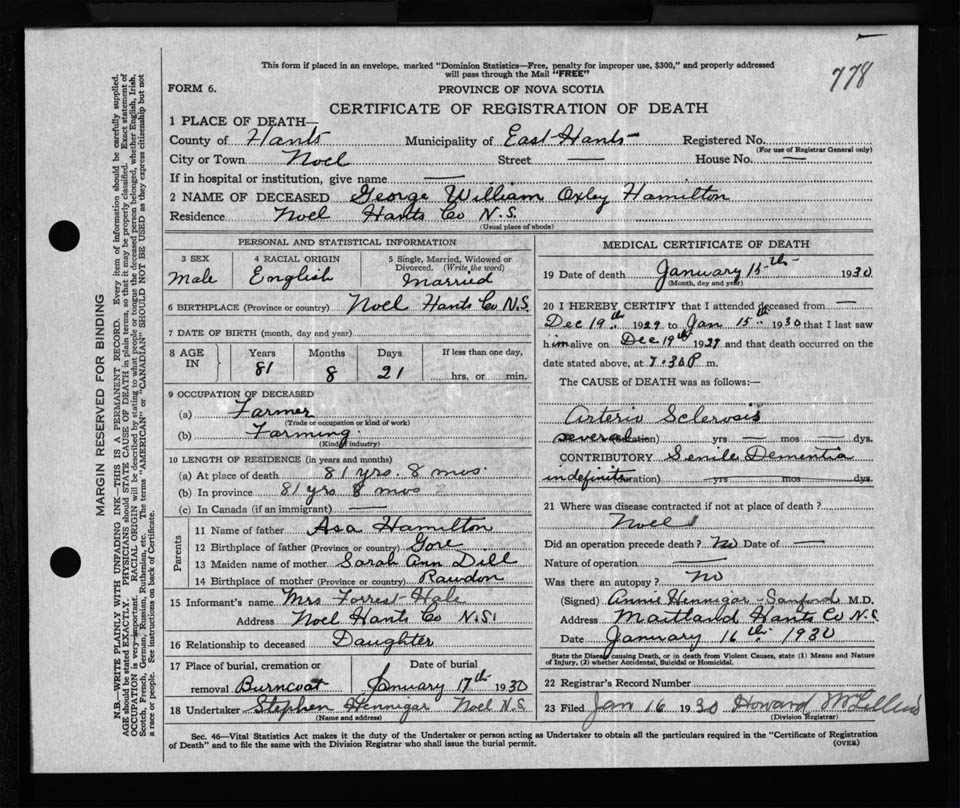 778
This form if placed in an envelope, marked "Dominion Statistics—Free, penalty for improper use, $300," and properly addressed
will pass through the Mail "FREE"
FORM 6.
PROVINCE OF NOVA SCOTIA
CERTIFICATE OF REGISTRATION OF DEATH
1 PLACE OF DEATH—
County of Hants Municipality of East Hants Registered No.
(For use of Registrar General only)
City or Town Noel Street — House No. —
If in hospital or institution, give name —
2 NAME OF DECEASED George William Oxley Hamilton
Residence Noel Hants Co N.S.
(Usual place of abode)
PERSONAL AND STATISTICAL INFORMATION
3 SEX 4 RACIAL ORIGIN 5 Single, Married, Widowed or
Divorced. (Write the word)
Male English Married
6 BIRTHPLACE (Province or country) Noel Hants Co N.S.
7 DATE OF BIRTH (month, day and year)
8 AGE IN Years Months Days If less than one day,
81 8 21 hrs. or min.
9 OCCUPATION OF DECEASED
(a) Farmer
(Trade or occupation or kind of work)
(b) Farming
(Kind of industry)
10 LENGTH OF RESIDENCE (in years and months)
(a) At place of death 81 yrs. 8 mos.
(b) In province 81 yrs 8 mos
(c) In Canada (if an immigrant) —
Parents
11 Name of father Asa Hamilton
12 Birthplace of father (Province or country) Gore
13 Maiden name of mother Sarah Ann Dill
14 Birthplace of mother (Province or country) Rawdon
15 Informant's name Mrs Forrest Hale
Address Noel Hants Co N.S.
16 Relationship to deceased Daughter
17 Place of burial, cremation or Date of burial
removal Burncoat January 17th 1930
18 Undertaker Stephen Hennigar Noel N.S.
(Name and address)
MEDICAL CERTIFICATE OF DEATH
19 Date of death January 15th 1930
(Month, day and year)
20 I HEREBY CERTIFY that I attended deceased from —
Dec 19th 1929 to Jan 15th 1930 that I last saw
him alive on Dec 19th 1929 and that death occurred on the
date stated above, at 7.30 P m.
The CAUSE OF DEATH was as follows:—
Arterio Sclerosis
several (duration) yrs — mos — dys.
CONTRIBUTORY Senile Dementia
indefinite (duration) yrs — mos — dys.
21 Where was disease contracted if not at place of death?
Noel
Did an operation precede death? No Date of —
Nature of operation —
Was there an autopsy? No
(Signed) Annie Hennigar-Sanford M.D.
Address Maitland Hants Co N.S
Date January 16th 1930
State the Disease causing Death, or in death from Violent Causes, state (1) Means and Nature
of Injury, (2) whether Accidental, Suicidal or Homicidal.
22 Registrar's Record Number
23 Filed Jan 16 1930 Howard
(Division Registrar)
Sec. 46—Vital Statistics Act makes it the duty of the Undertaker or person acting as Undertaker to obtain all the particulars required in the "Certificate of Registration
of Death" and to file the same with the Division Registrar who shall issue the burial permit.
(OVER)
MARGIN RESERVED FOR BINDING
N.B.—WRITE PLAINLY WITH UNFADING INK—THIS IS A PERMANENT RECORD. Every item of information should be carefully supplied.
AGE should be stated EXACTLY. PHYSICIANS should STATE CAUSE OF DEATH in plain terms, so that it may be properly classified. Exact statement of
OCCUPATION is very important. RACIAL ORIGIN will be described by stating to what people or tongue the deceased person belonged, whether English, Irish,
Scotch, French, German, Russian, Ruthenian, etc. The terms "AMERICAN" or "CANADIAN" SHOULD NOT BE USED as they express citizenship but not
a race or people. See instructions on back of Certificate.